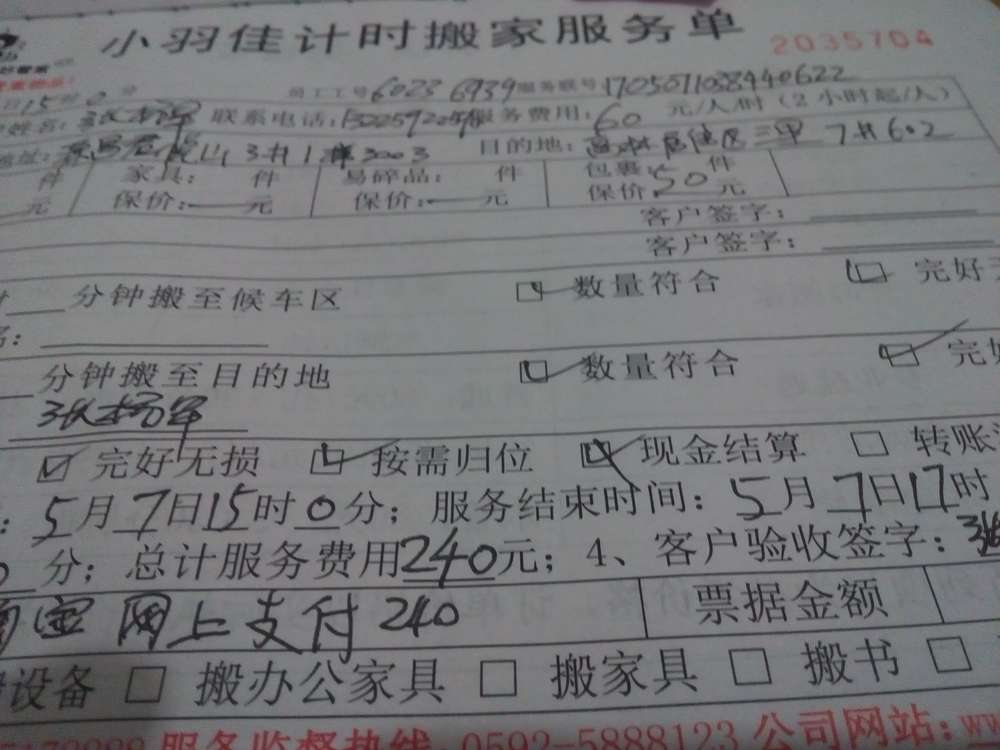 小羽佳计时搬家服务单
2035704
日15时0分 员工工号6023 6939服务联号1705071038440622
姓名: 联系电话: 服务费用:60 元/人/时（2小时起/人）
地址: 目的地: 三里 7#602
件 家具: 件 易碎品: 件 包裹: 件
元 保价:— 元 保价:— 元 保价:50元
客户签字:
客户签字:
分钟搬至候车区 数量符合 完好
分钟搬至目的地 数量符合 完好
完好无损 按需归位 现金结算 转账
: 5月7日15时0分; 服务结束时间: 5月7日17时
0分; 总计服务费用240元; 4、客户验收签字: 张
网上支付240 票据金额
设备 搬办公家具 搬家具 搬书
服务监督热线:0592-5888123 公司网站: